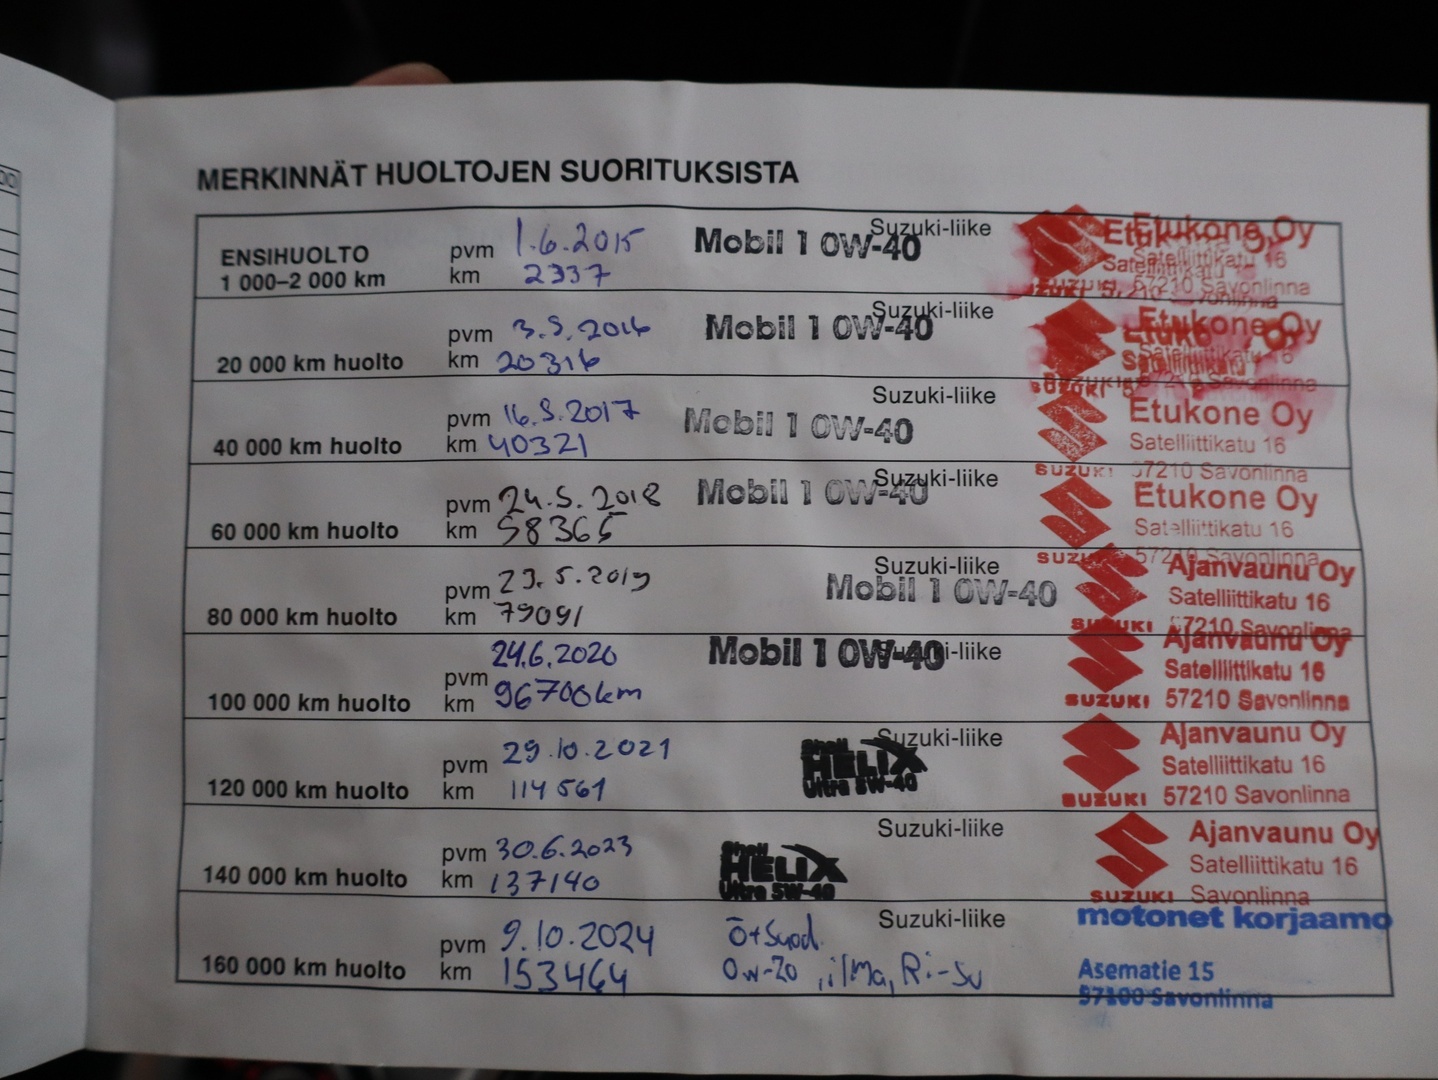 MERKINNÄT HUOLTOJEN SUORITUKSISTA
ENSIHUOLTO
1 000–2 000 km
pvm 1.6.2015
km 2337
Mobil 1 0W-40
Suzuki-liike
Etukone Oy
Satelliittikatu 16
SUZUKI 57210 Savonlinna
20 000 km huolto
pvm 3.5.2016
km 20316
Mobil 1 0W-40
Suzuki-liike
Etukone Oy
Satelliittikatu 16
SUZUKI Savonlinna
40 000 km huolto
pvm 16.5.2017
km 40321
Mobil 1 0W-40
Suzuki-liike
Etukone Oy
Satelliittikatu 16
SUZUKI 57210 Savonlinna
60 000 km huolto
pvm 24.5.2018
km 58365
Mobil 1 0W-40
Suzuki-liike
Etukone Oy
Satelliittikatu 16
SUZUKI 57210 Savonlinna
80 000 km huolto
pvm 23.5.2019
km 79091
Mobil 1 0W-40
Suzuki-liike
Ajanvaunu Oy
Satelliittikatu 16
SUZUKI 57210 Savonlinna
100 000 km huolto
pvm 24.6.2020
km 96700km
Mobil 1 0W-40
Suzuki-liike
Ajanvaunu Oy
Satelliittikatu 16
SUZUKI 57210 Savonlinna
120 000 km huolto
pvm 29.10.2021
km 114561
Shell
HELIX
Ultra 5W-40
Suzuki-liike
Ajanvaunu Oy
Satelliittikatu 16
SUZUKI 57210 Savonlinna
140 000 km huolto
pvm 30.6.2023
km 137140
Shell
HELIX
Ultra 5W-40
Suzuki-liike
Ajanvaunu Oy
Satelliittikatu 16
SUZUKI Savonlinna
160 000 km huolto
pvm 9.10.2024
km 153464
Ö+Suod.
0w-20, ilma, Ri-Su
Suzuki-liike
motonet korjaamo
Asematie 15
57100 Savonlinna